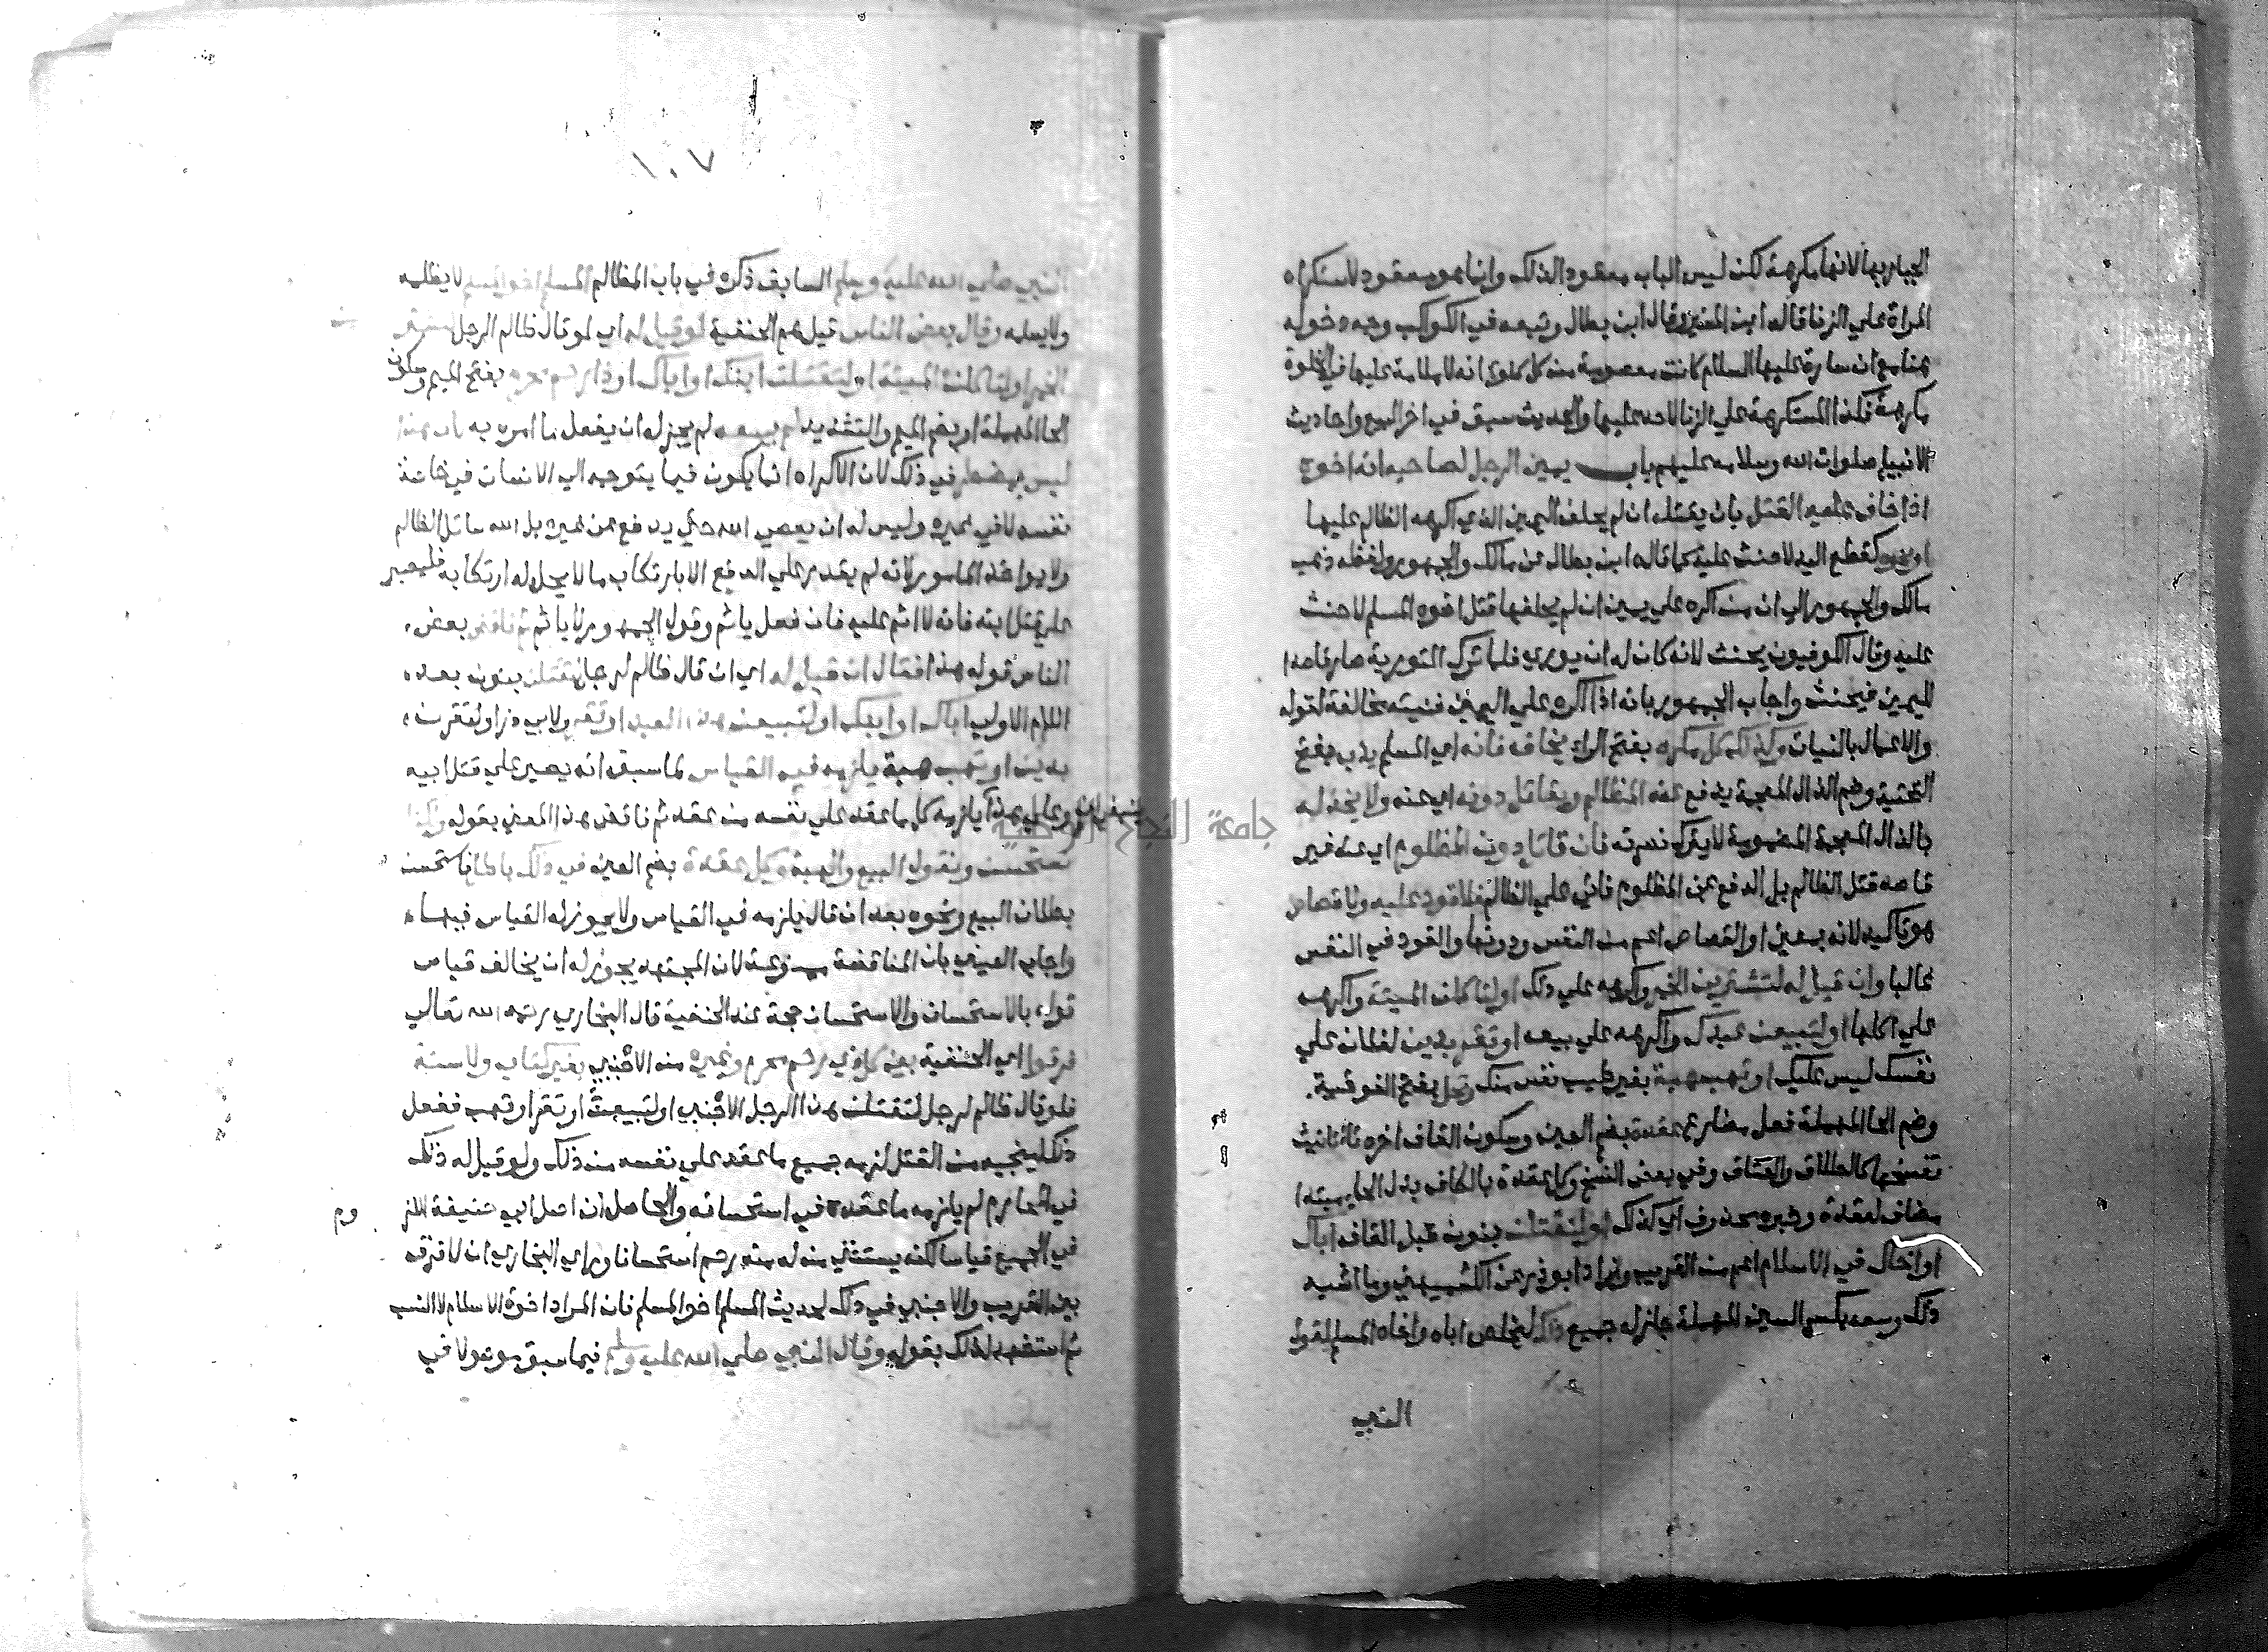 الجبار بها لانها مكرهة لكن ليس الباب معقودا لذلك وانما هو معقود لاستكراه
المراة علي الزنا قاله ابن المنير وقال ابن بطال وتبعه في الكواكب وجه دخوله
هنا مع ان سارة عليها السلام كانت معصومة من كل سوء انه لا ملامة عليها في الخلوة
مكرهة فكذا المستكرهة علي الزنا لا حد عليها والحديث سبق في اخر البيع واحاديث
الانبياء صلوات الله وسلامه عليهم باب يمين الرجل لصاحبه انه اخوه
اذا خاف عليه القتل بان يقتله ان لم يحلف اليمين الذي اكرهه الظالم عليها
او نحوه كقطع اليد لا حنث عليه كما قاله ابن بطال عن مالك والجمهور ولفظه ذهب
مالك والجمهور الي ان من اكره علي يمين ان لم يحلفها قتل اخوه المسلم لا حنث
عليه وقال الكوفيون يحنث لانه كان له ان يوري فلما ترك التورية صار قاصدا
لليمين فيحنث واجاب الجمهور بانه اذا اكره علي اليمين فنيته مخالفة لقوله
والاعمال بالنيات وكذلك كل مكره بفتح الراء يخاف فانه اي المسلم يذب بفتح
التحتية وضم الذال المعجمة يدفع عنه المظالم ويقاتل دونه اي عنه ولا يخذله
بالذال المعجمة المضمومة لا يترك نصرته فان قاتل دون المظلوم اي عنه غير
قاصد قتل الظالم بل الدفع عن المظلوم فاتي علي الظالم فلا قود عليه ولا قصاص
هو تاكيد لانه بمعني او القصاص اعم من النفس ودونها والقود في النفس
غالبا وان قيل له لتشربن الخمر واكرهه علي ذلك او لتاكلن الميتة واكرهه
علي اكلها او لتبيعن عبدك واكرهه علي بيعه او تقر بدين لفلان علي
نفسك ليس عليك او تهب هبة بغير طيب نفس منك وتحل بفتح الفوقية
وضم الحا المهملة فعل مضارع عقدة بضم العين وسكون القاف اخره تا تانيث
تفسخها كالطلاق والعتاق وفي بعض النسخ وكل عقدة بالكاف بدل الحا مبتدا
مضاف لعقدة وخبره محذوف اي كذلك او لنقتلن بنون قبل القاف اباك
او اخاك في الاسلام اعم من القريب وزاد ابوذر عن الكشميهني وما اشبه
ذلك وسعه بكسر السين المهملة جاز له جميع ذلك ليخلص اباه واخاه المسلم لقول
النبي
١٠٧
النبي صلي الله عليه وسلم السابق ذكره في باب المظالم المسلم اخو المسلم لا يظلمه
ولا يسلمه وقال بعض الناس قيل هم الحنفية لو قيل له اي لو قال ظالم الرجل لتشربن
الخمر او لتاكلن الميتة او لنقتلن ابنك او اباك او ذا رحم محرم بفتح الميم وسكون
الحا المهملة او بضم الميم والتشديد لم يسعه لم يجز له ان يفعل ما امره به لان هذا
ليس بمضطر في ذلك لان الاكراه انما يكون فيما يتوجه الي الانسان في خاصة
نفسه لا في غيره وليس له ان يعصي الله حتي يدفع عن غيره بل الله سائل الظالم
ولا يواخذ المامور لانه لم يقدر علي الدفع الا بارتكاب ما لا يحل له ارتكابه فليصبر
علي قتل ابنه فانه لا اثم عليه فان فعل ياثم وقول الجمهور لا ياثم ثم ناقض بعض
الناس قوله هذا فقال ان قيل له اي ان قال ظالم لرجل لنقتلن بنون بعد
اللام الاولي اباك او ابنك او لتبيعن هذا العبد او تقر ولابي ذر او لتقرن
بدين او تهب هبة يلزمه في القياس لما سبق انه يصبر علي قتل ابيه
وعلي هذا يلزمه كل ما عقد علي نفسه من عقد ثم ناقض هذا المعني بقوله ولكنا
نستحسن ونقول البيع والهبة وكل عقدة بضم العين في ذلك باطل فاستحسن
بطلان البيع ونحوه بعد ان قال يلزمه في القياس ولا يجوز له القياس فيها
واجاب العيني بان المناقضة ممنوعة لان المجتهد يجوز له ان يخالف قياس
قوله بالاستحسان والاستحسان حجة عند الحنفية قال البخاري رحمه الله تعالي
فرقوا اي الحنفية بين كل ذي رحم محرم وغيره من الاجنبي بغير كتاب ولا سنة
فلو قال ظالم لرجل لنقتلن هذا الرجل الاجنبي او لتبيعن او تقر او تهب ففعل
ذلك لينجيه من القتل لزمه جميع ما عقد علي نفسه من ذلك ولو قيل له ذلك
في المحارم لم يلزمه ما عقده في استحسانه والحاصل ان اصل ابي حنيفة اللز
وم
في الجميع قياسا لكنه يستثني من له منه رحم استحسانا وراي البخاري ان لا فرق
بين القريب والاجنبي في ذلك لحديث المسلم اخو المسلم فان المراد اخوة الاسلام لا النسب
ثم استشهد لذلك بقوله وقال النبي صلي الله عليه وسلم فيما سبق موصولا في
جامعة النجاح الوطنية